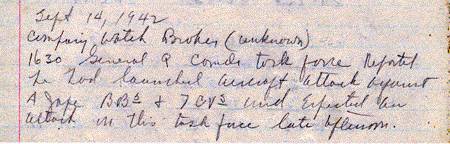 Sept 14, 1942
Company Watch Broken (unknown)
1630 General Q Comdr task force reported
he had launched aircraft attack against
4 Japs BBs & 7 CVs and Expected an
attack on this task force late afternoon.